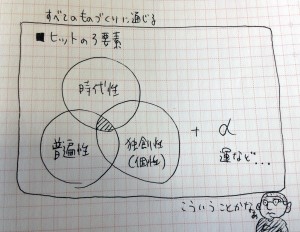 すべてのものづくりに通じる
■ヒットの3要素
時代性
普遍性
独創性
(個性)
+ α
運など…
こういうことかなぁ